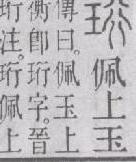 珩佩上玉
傳曰。佩玉上
衡卽珩字。晉
珩注。珩佩上